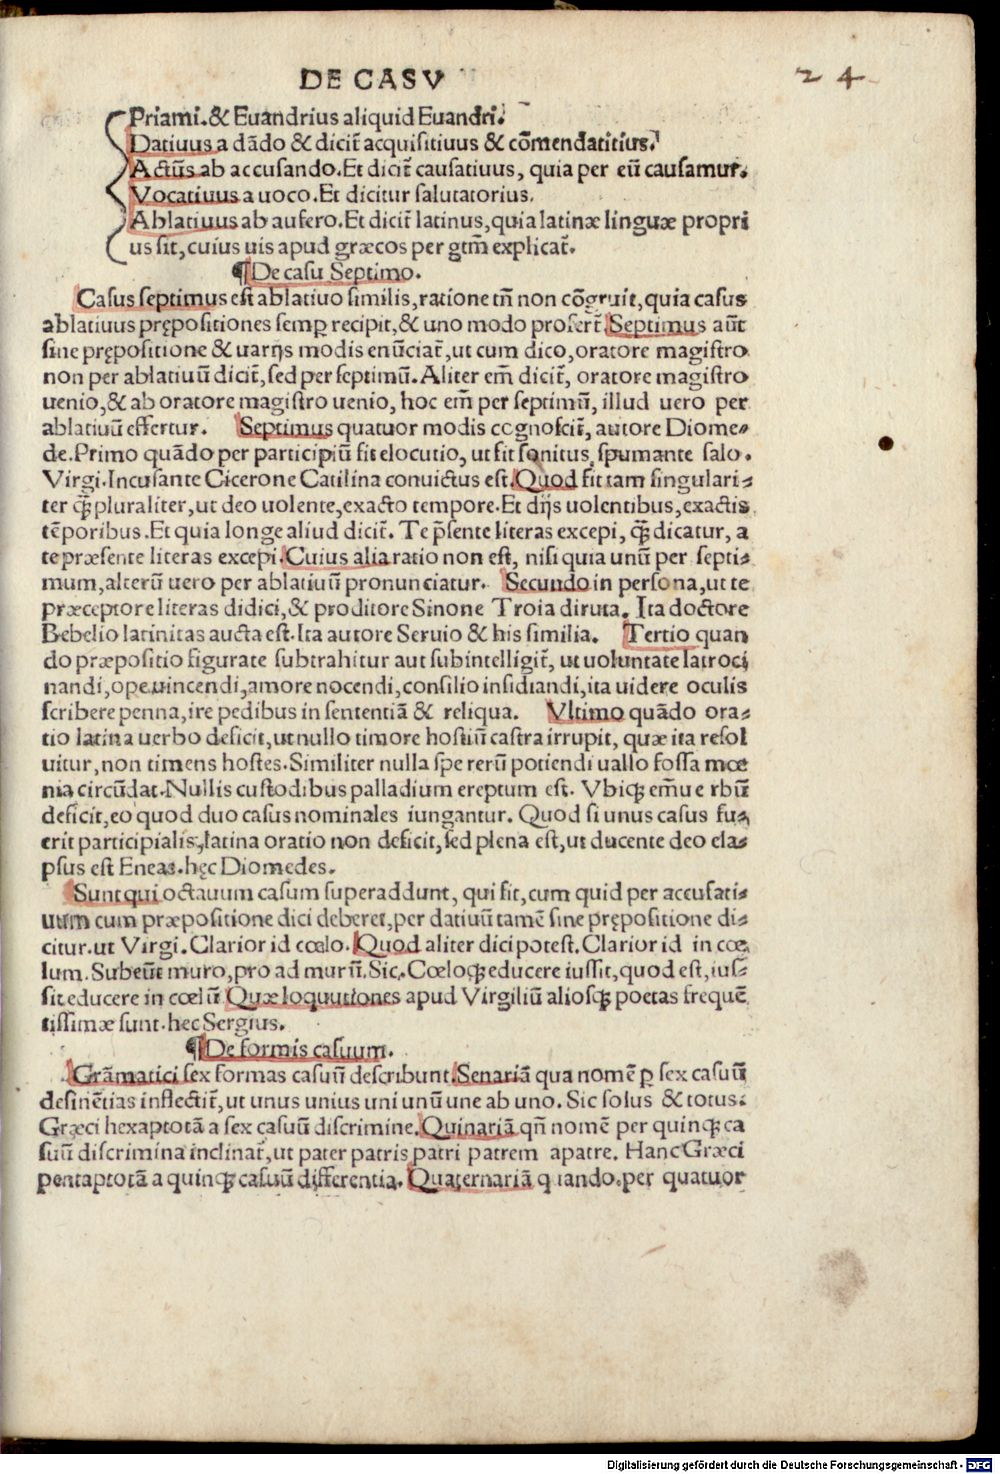 DE CASV
24
Priami.& Euandrius aliquid Euandri.
Datiuus a dādo & dicit̄ acquisitiuus & cōmendatitius.
Actūs ab accusando. Et dicit̄ causatiuus, quia per eū causamur.
Vocatiuus a uoco. Et dicitur salutatorius.
Ablatiuus ab aufero. Et dicit̄ latinus, quia latinæ linguæ propri
us sit, cuius uis apud græcos per gtm̄ explicat̄.
¶De casu Septimo.
Casus septimus est ablatiuo similis, ratione tn̄ non cōgruit, quia casus
ablatiuus prępositiones semꝑ recipit, & uno modo profert̄. Septimus aūt
sine prępositione & uarijs modis enūciat̄, ut cum dico, oratore magistro
non per ablatiuū dicit̄, sed per septimū. Aliter em̄ dicit̄, oratore magistro
uenio, & ab oratore magistro uenio, hoc em̄ per septimū, illud uero per
ablatiuū effertur. Septimus quatuor modis cognoscit̄, autore Diome-
de. Primo quādo per participiū fit elocutio, ut fit sonitus, spumante salo.
Virgi. Incusante Cicerone Catilina conuictus est. Quod fit tam singulari-
ter ꝙ̄ pluraliter, ut deo uolente, exacto tempore. Et dijs uolentibus, exactis
tēporibus. Et quia longe aliud dicit̄. Te p̄sente literas excepi, ꝙ̄ dicatur, a
te præsente literas excepi. Cuius alia ratio non est, nisi quia unū per septi-
mum, alterū uero per ablatiuū pronunciatur. Secundo in persona, ut te
præceptore literas didici, & proditore Sinone Troia diruta. Ita doctore
Bebelio latinitas aucta est. Ita autore Seruio & his similia. Tertio quan
do præpositio figurate subtrahitur aut subintelligit̄, ut uoluntate latroci
nandi, ope uincendi, amore nocendi, consilio insidiandi, ita uidere oculis
scribere penna, ire pedibus in sententiā & reliqua. Vltimo quādo ora-
tio latina uerbo deficit, ut nullo timore hostiū castra irrupit, quæ ita resol
uitur, non timens hostes. Similiter nulla spe rerū potiendi uallo fossa mœ
nia circūdat. Nullis custodibus palladium ereptum est. Vbiqꝫ em̄ uerbū
deficit, eo quod duo casus nominales iungantur. Quod si unus casus fu-
erit participialis, latina oratio non deficit, sed plena est, ut ducente deo ela-
psus est Eneas. hęc Diomedes.
Sunt qui octauum casum superaddunt, qui fit, cum quid per accusati-
uum cum præpositione dici deberet, per datiuū tamē sine prępositione di-
citur. ut Virgi. Clarior id cœlo. Quod aliter dici potest. Clarior id in cœ-
lum. Subeūt muro, pro ad murū. Sic. Cœloqꝫ educere iussit, quod est, ius-
sit educere in cœlū Quæ loquutiones apud Virgiliū aliosqꝫ poetas frequē
tissimæ sunt. hec Sergius.
¶De formis casuum.
Grāmatici sex formas casuū describunt. Senariā qua nomē ꝑ sex casuū
desinētias inflectit̄, ut unus unius uni unū une ab uno. Sic solus & totus.
Græci hexaptotā a sex casuū discrimine. Quinariā qn̄ nomē per quinqꝫ ca
suū discrimina inclinat̄, ut pater patris patri patrem apatre. Hanc Græci
pentaptotā a quinqꝫ casuū differentia. Quaternariā quando per quatuor
Digitalisierung gefördert durch die Deutsche Forschungsgemeinschaft - DFG